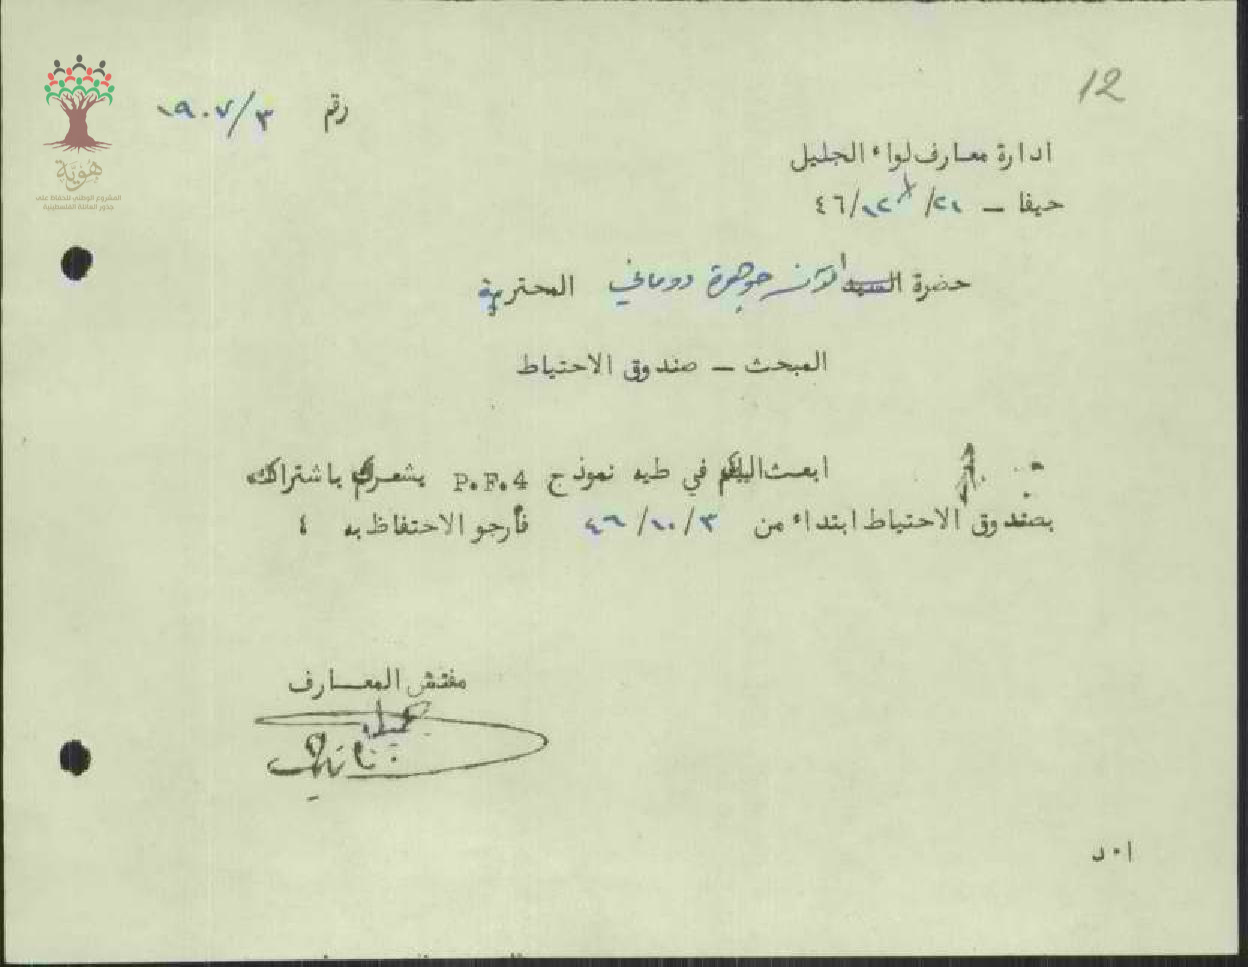 12
رقم ١٩٠٧/٣
هُوِيَّة
المشروع الوطني للحفاظ على
جذور العائلة الفلسطينية
ادارة معارف لواء الجليل
حيفا – ٢١/١٢/٤٦
حضرة السيد الآنسة جوهرة دوماني المحترمة
المبحث – صندوق الاحتياط
ابعث اليكم في طيه نموذج P.F.4 يشعركم باشتراك
بصندوق الاحتياط ابتداء من ٣/١٠/٤٦ فأرجو الاحتفاظ به ٤
مفتش المعارف
ا٠د